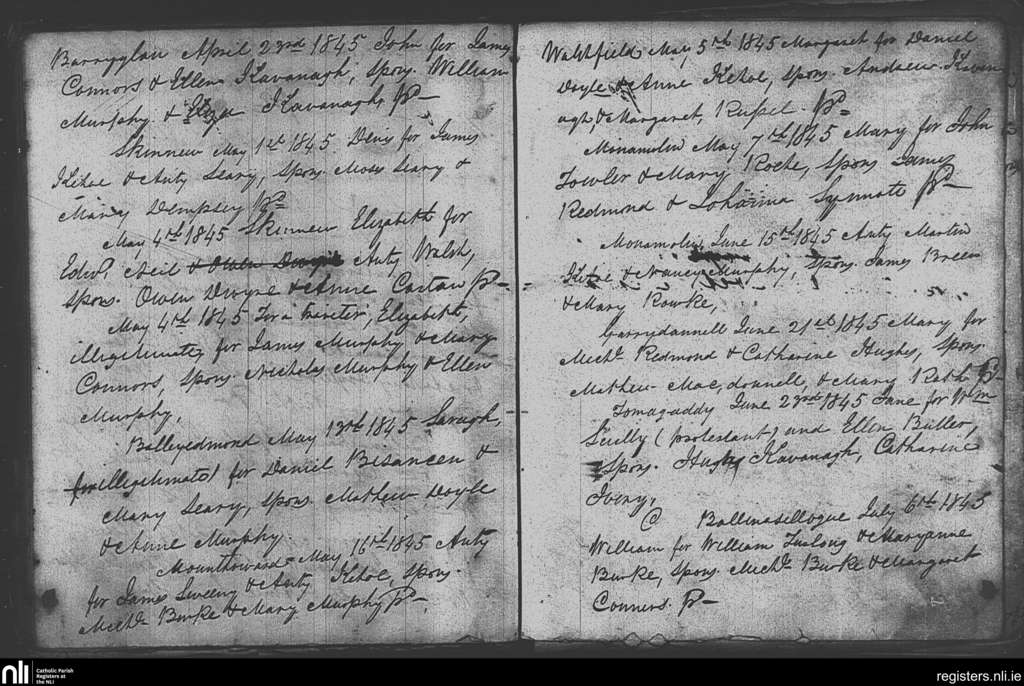 Barryglan April 23rd 1845 John for James
Connors & Ellen Kavanagh, Spons. William
Murphy & Eliza Kavanagh, Pd—
Skinnew May 1st 1845 Deniz for James
Kehoe & Anty Leary, Spons. Moses Leary &
Mary Dempsey Pd=
May 4th 1845 Skinnew Elizabeth for
Edwd. Neil & Owen Dwyre Anty Walsh,
Spons. Owen Dwyre & Anne Pd—
May 4th 1845 For a Traveler, Elizabeth,
illegitimate, for James Murphy & Mary
Connors, Spons. Nicholas Murphy & Ellen
Murphy,
Balleyedmond May 13th 1845 Saragh,
for illegitimate) for Daniel &
Mary Leary, Spons. Mathew Doyle
& Anne Murphy.
Mounthoward May 16th 1845 Anty
for James Sweeny & Anty Kehoe, Spons.
Michl. Burke & Mary Murphy Pd—
Walshfield May 5th 1845 Margaret for Daniel
Doyle & Anne Kehoe, Spons. Andrew Kavan
agh, & Margaret, Pd=
Monamolin May 7th 1845 Mary for John
Fowler & Mary Roche, Spons James
Redmond & Synnate Pd—
Monamolin June 15th 1845 Anty Martin
Kehoe & Nancy Murphy, Spons. James Breen
& Mary Rowke,
Garrydannell June 21st 1845 Mary for
Michl. Redmond & Catharine Hughes, Spons.
Mathew Mac,donnell, & Mary Rath Pd—
Tomagaddy June 23rd 1845 Jane for Wm
Scully (protestant) and Ellen Butler,
Spons. Hugh Kavanagh, Catharine
Ivory,
@ Ballinasillogue July 6th 1845
William for William Furlong & Maryanne
Burke, Spons. Michl. Burke & Margaret
Connors. Pd—
nli
Catholic Parish
Registers at
the NLI
registers.nli.ie